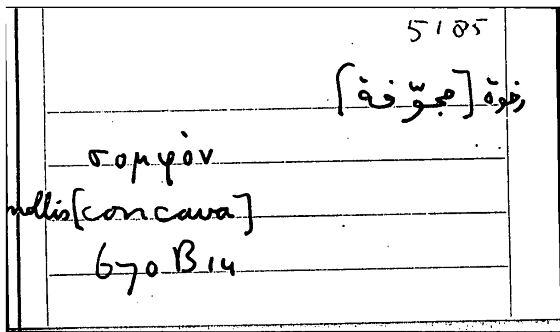 5185
رخوة [مجوّفة]
σομφόν
mollis [concava]
670 B 14